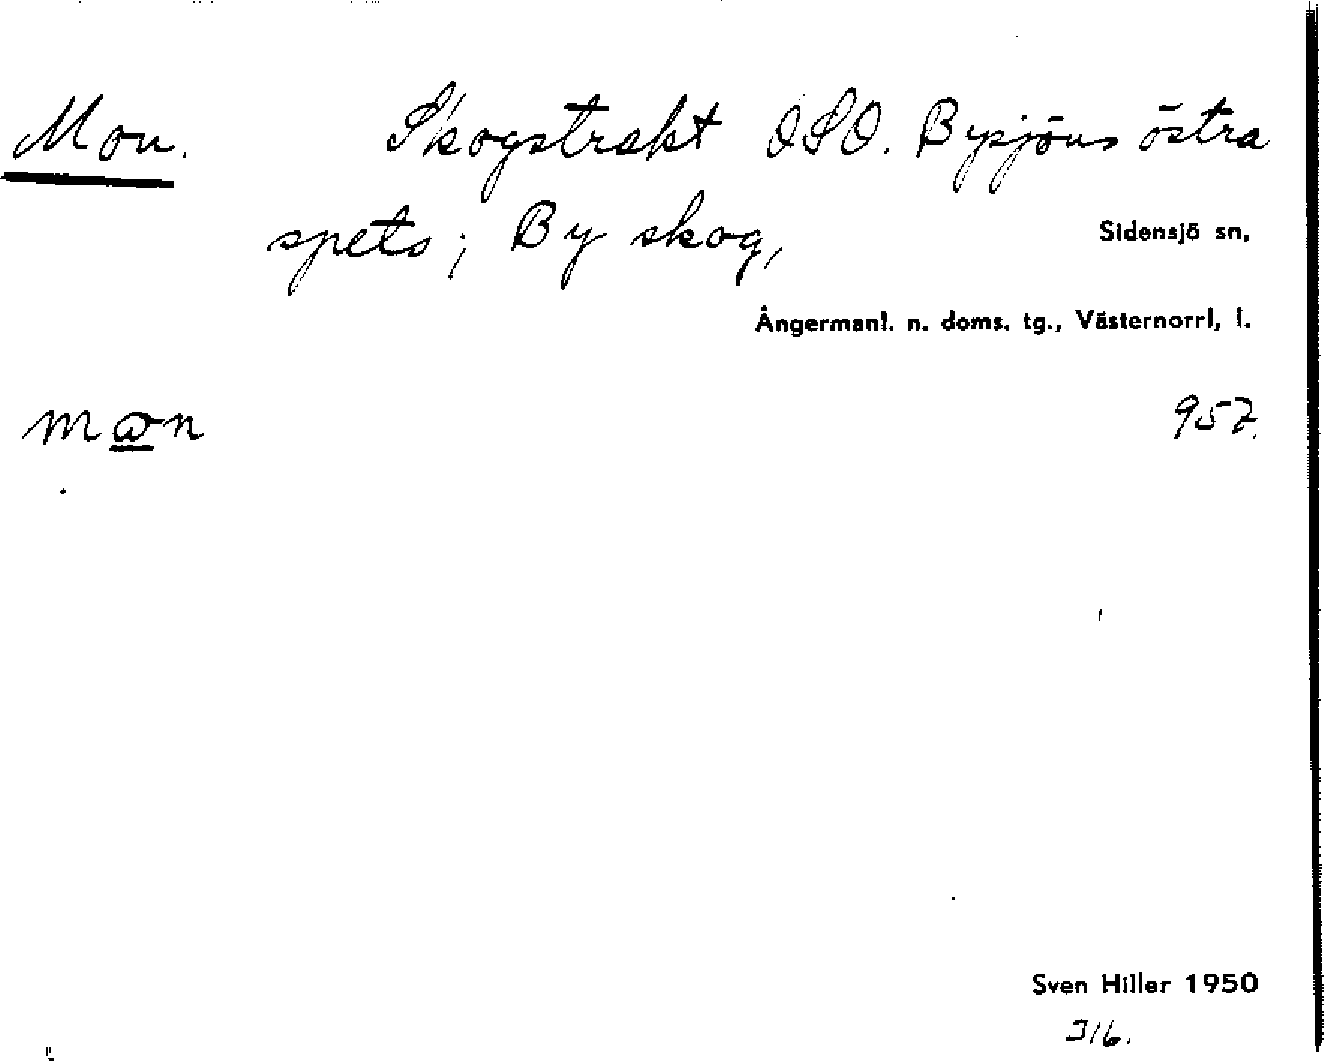 Mon. Skogstrakt OSO. Bysjöns östra
spets; By skog,
Sidensjö sn,
Ångermanl. n. doms. tg., Västernorrl, l.
957.
Sven Hiller 1950